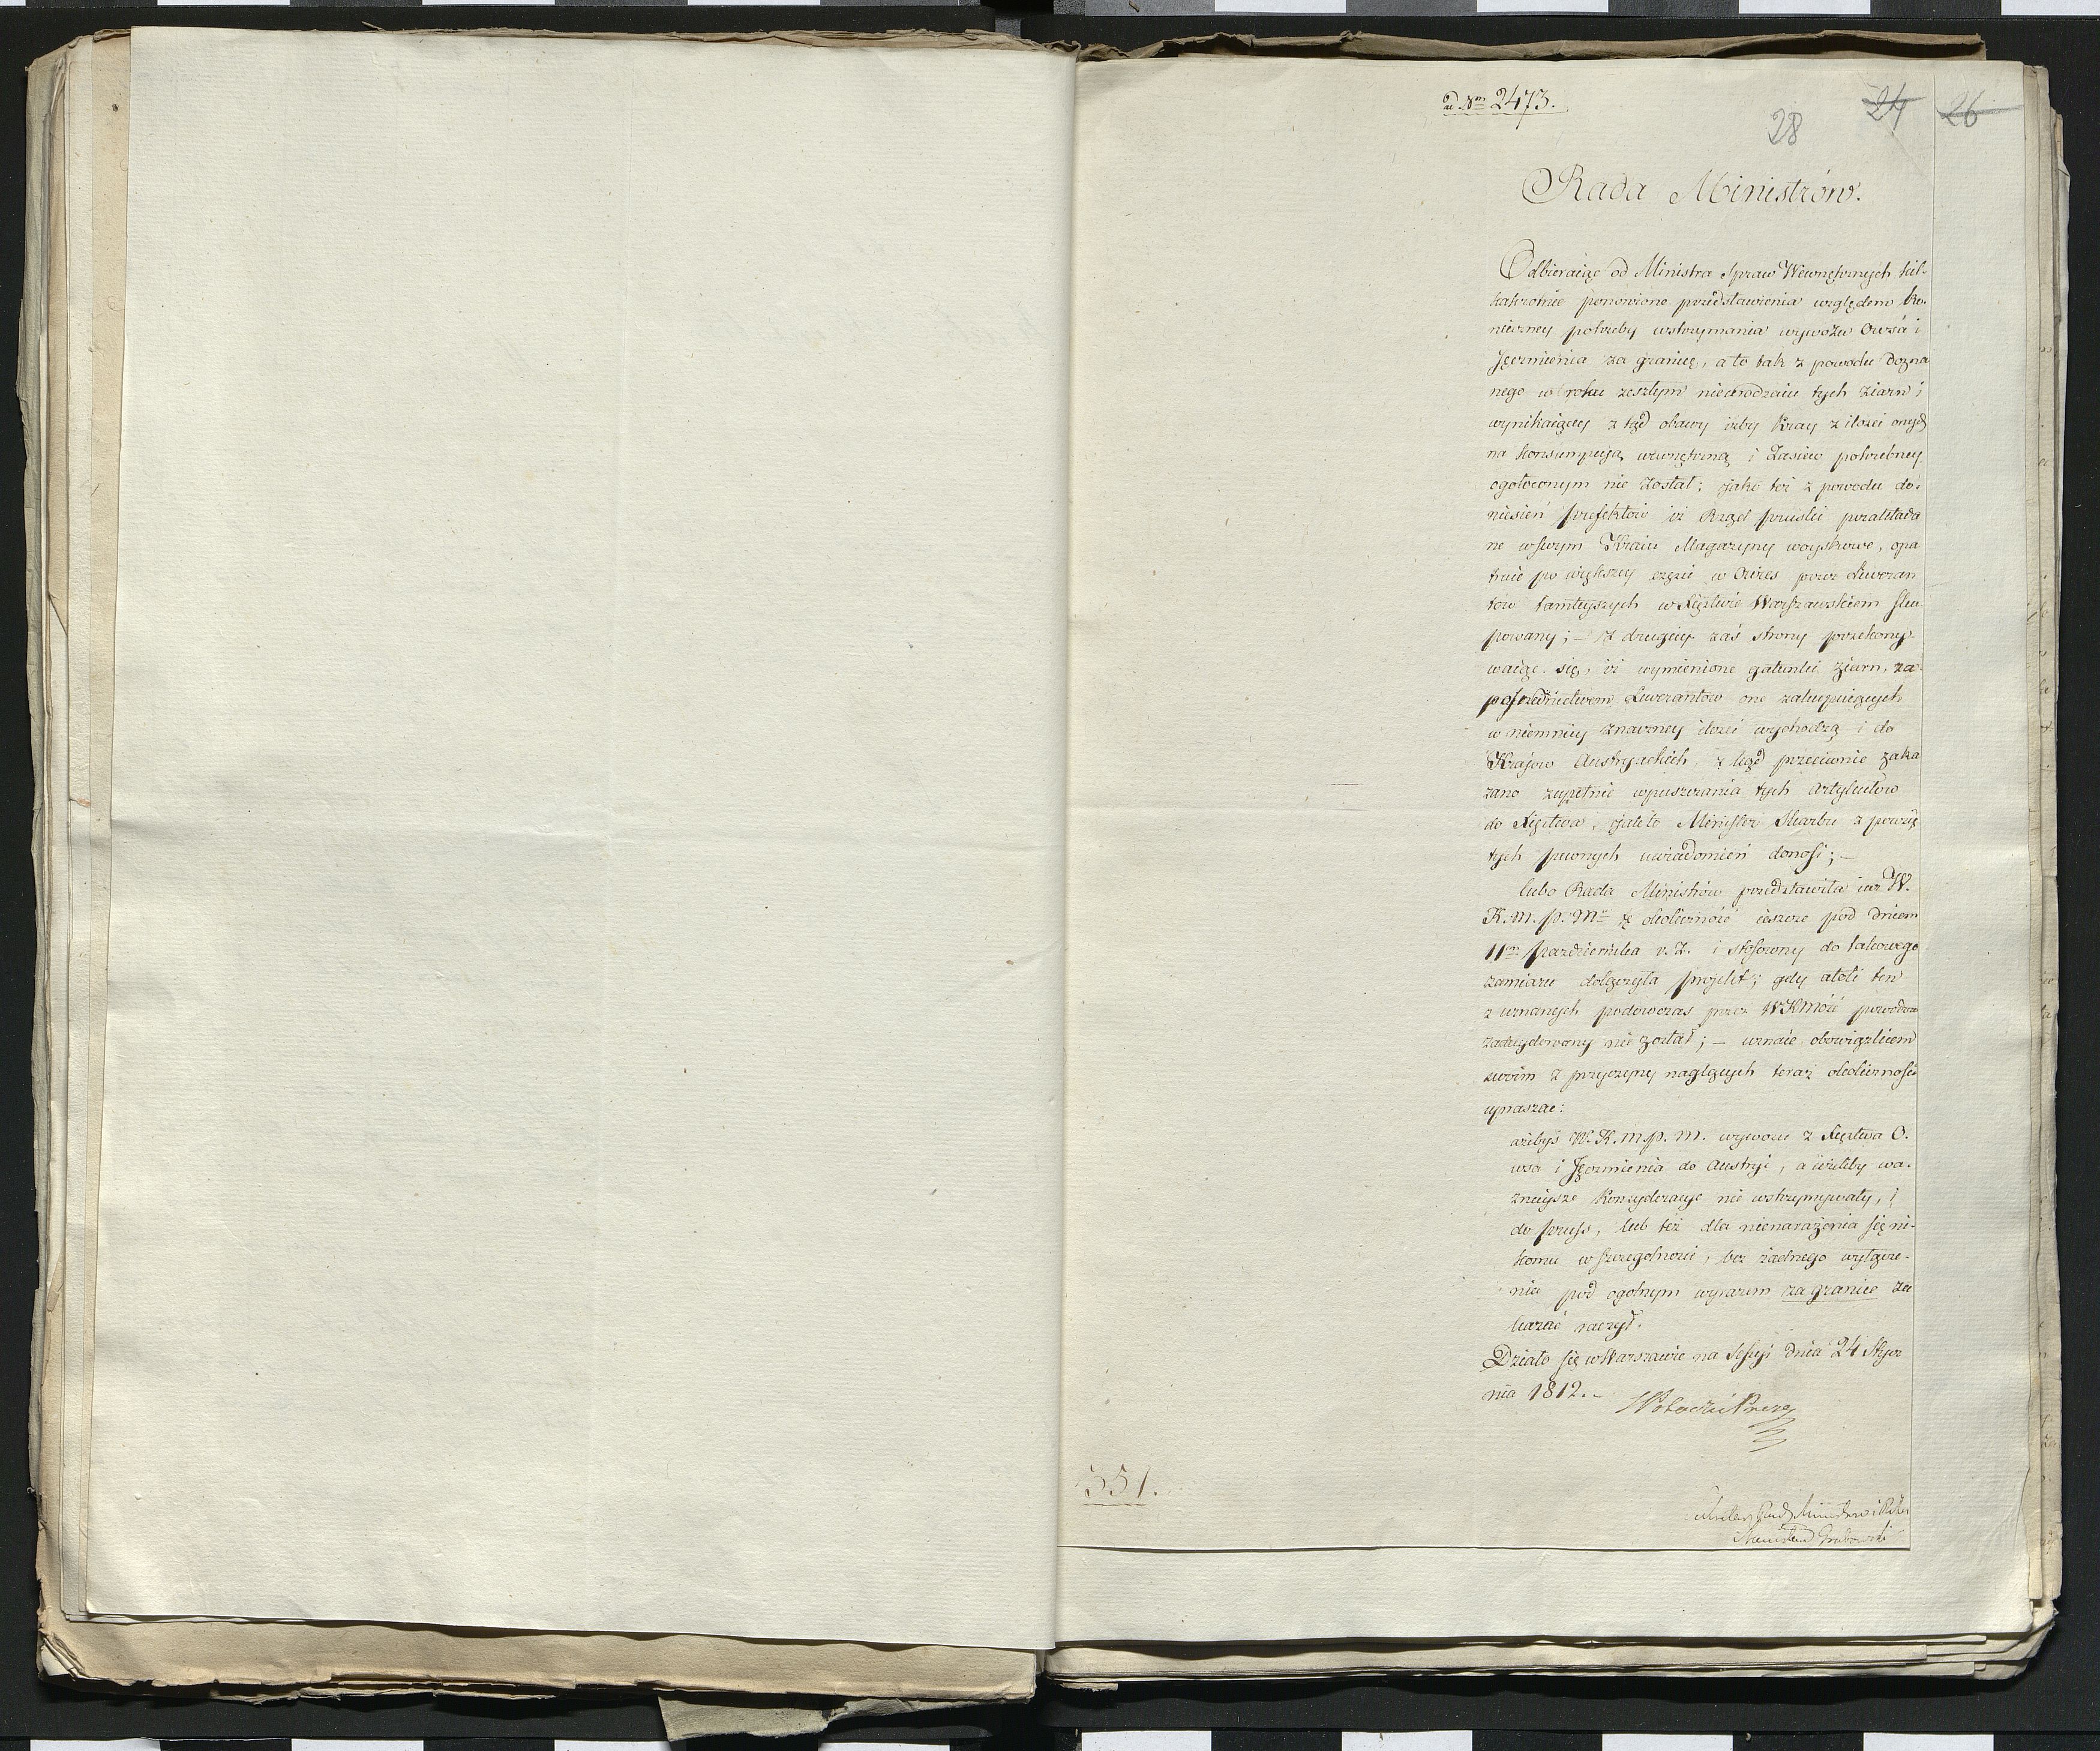 ad Nrm 2473.
28 24 26
Rada Ministrów.
Odbieraiąc od Ministra Spraw Wewnętrznych kil-
kakrotnie ponowione przedstawienia względem ko-
nieczney potrzeby wstrzymania wywozu Owsa i
Jęczmienia za granicę, a to tak z powodu dozna
nego w roku zeszłym nieurodzaiu tych ziarn i
wynikaiącey z tąd obawy iżby Kray z ilości onych
na konsumpcyią wewnętrzną i Zasiew potrzebney
ogołoconym nie został; jako też z powodu do-
niesień prefektów iż Rząd pruski pozakłada
ne w swym Kraiu Magazyny woyskowe, opa
truie po większey części w Owies przez Liweran
tów tamteyszych w Xięstwie Warszawskiem sku
powany; – z drugiey zaś strony przekony-
waiąc się, iż wymienione gatunki ziarn, za
pośrednictwem Liwerantów one zakupuiących
w niemniey znaczney ilości wychodzą i do
Krajów Austryackich, z kąd przeciwnie zaka
zano zupełnie wpuszczania tych artykułów
do Xięstwa, jak to Minister Skarbu z powzię
tych pewnych uwiadomień donosi; –
lubo Rada Ministrów przedstawiła iuż W.
K. M. P. M. tę okoliczność ieszcze pod dniem
11m Października r. z. i stosowny do takowego
zamiaru dołączyła projekt; gdy atoli ten
z uznanych podówczas przez WKMość powodów
zadecydowany nie został; – uznaie obowiązkiem
swoim z przyczyny naglących teraz okoliczności
upraszać:
ażebyś W. K. M. P. M. wywozu z Xięstwa O-
wsa i Jęczmienia do Austryi, a ieżeliby wa-
żnieysze konsyderacye nie wstrzymywały, i
do Pruss, lub też dla nienarażenia się ni-
komu w szczególności, bez żadnego wyłącze-
nia pod ogólnym wyrazem za granicę za
kazać raczył.
Działo się w Warszawie na Sessyi dnia 24 Stycz
nia 1812. –
SPotocki Prezes
351.
Sekretarz Rady Ministrów i Stanu
Stanisław Grabowski